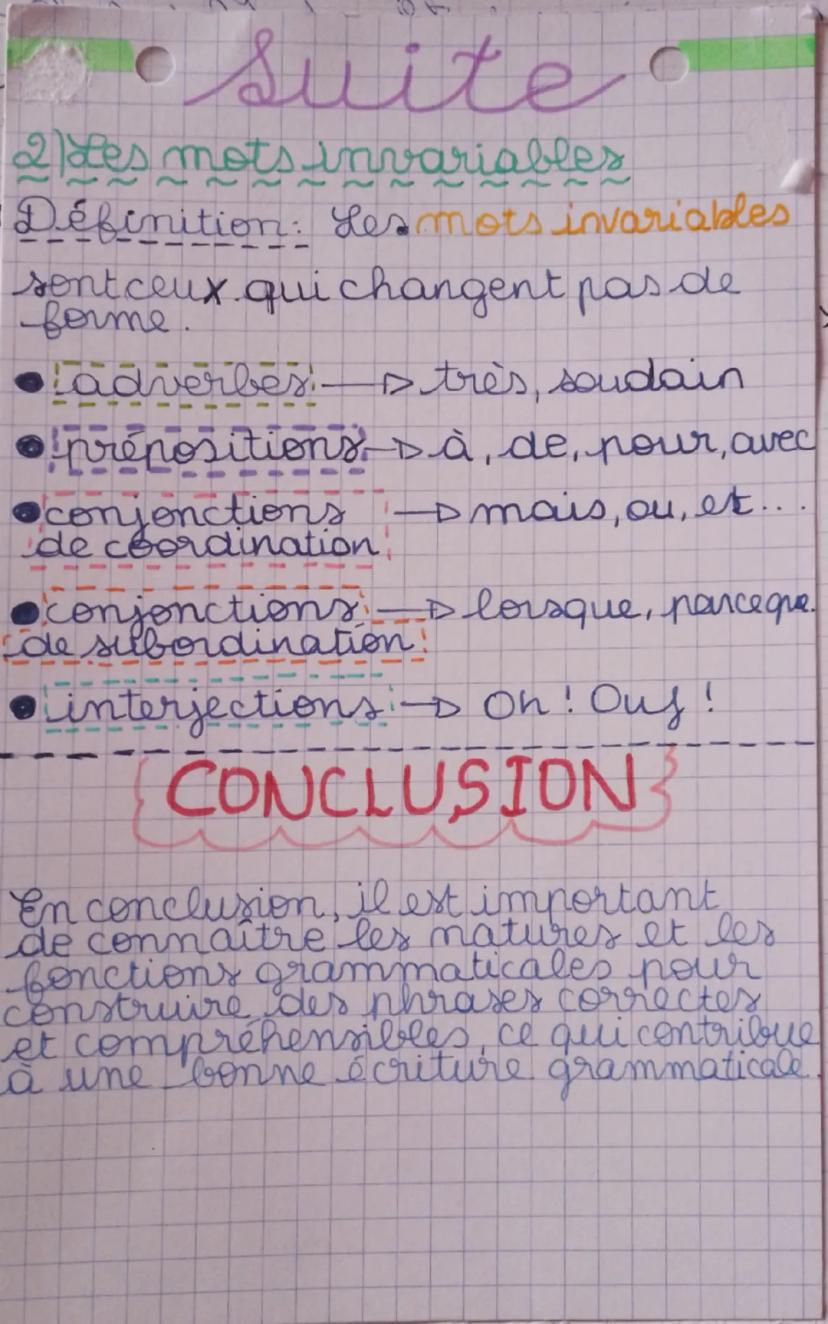 Suite
2) Les mots invariables
Définition: Les mots invariables
sont ceux qui changent pas de
forme.
• adverbes → très, soudain
• prépositions → à, de, pour, avec
• conjonctions → mais, ou, et...
de coordination
• conjonctions → lorsque, parceque.
de subordination
• interjections → Oh! Ouf!
CONCLUSION
En conclusion, il est important
de connaître les natures et les
fonctions grammaticales pour
construire des phrases correctes
et compréhensibles, ce qui contribue
à une bonne écriture grammaticale.